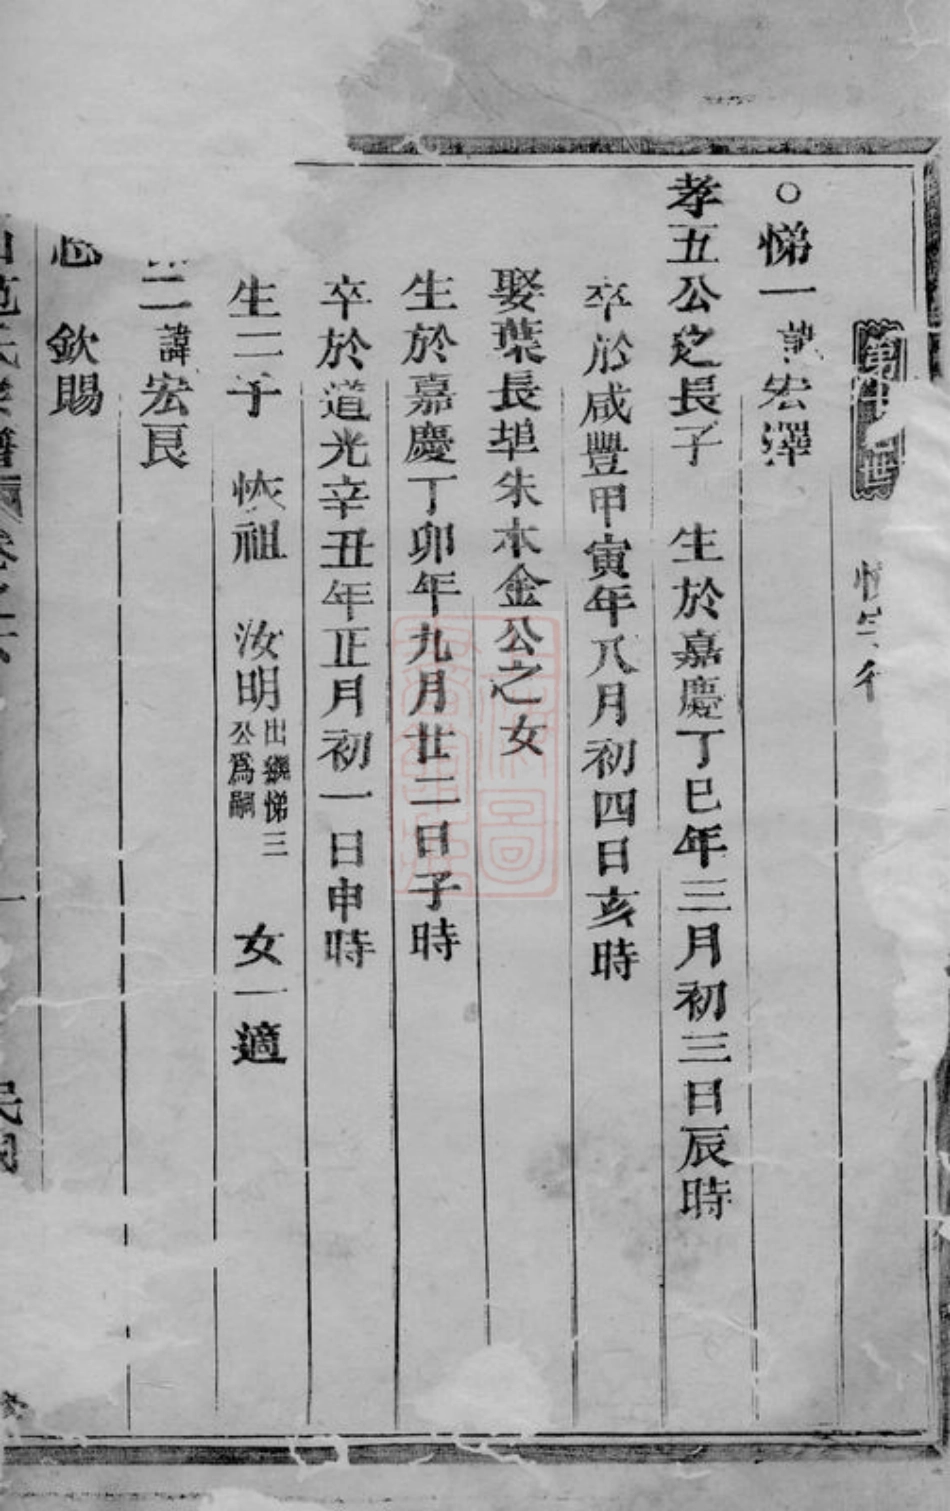 第 世
○悌一諱宏澤
孝五公之長子 生於嘉慶丁巳年三月初三日辰時
卒於咸豐甲寅年八月初四日亥時
娶葉長埴朱木金公之女
生於嘉慶丁卯年九月廿二日子時
卒於道光辛丑年正月初一日申時
生二子 恢祖 汝明出繼悌三公爲嗣 女一適
二諱宏良
欽賜
范氏宗譜 卷之六 一